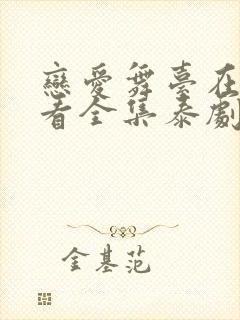 戀愛舞臺在
看全集泰劇
金基范